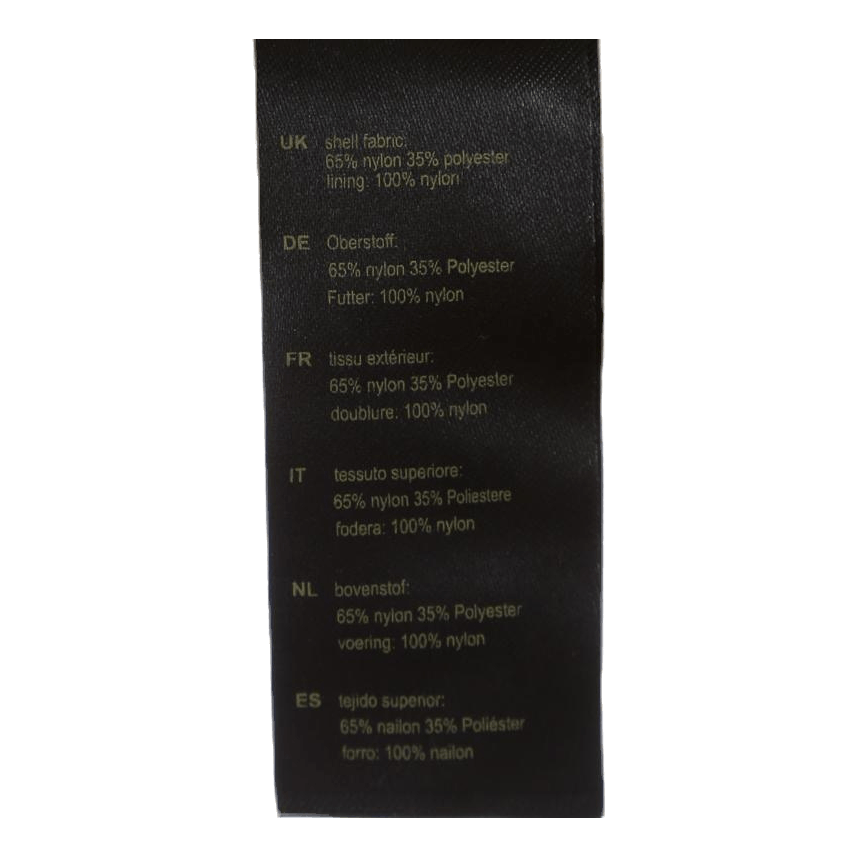 UK shell fabric:
65% nylon 35% polyester
lining: 100% nylon
DE Oberstoff:
65% nylon 35% Polyester
Futter: 100% nylon
FR tissu extérieur:
65% nylon 35% Polyester
doublure: 100% nylon
IT tessuto superiore:
65% nylon 35% Poliestere
fodera: 100% nylon
NL bovenstof:
65% nylon 35% Polyester
voering: 100% nylon
ES tejido superior:
65% nailon 35% Poliéster
forro: 100% nailon